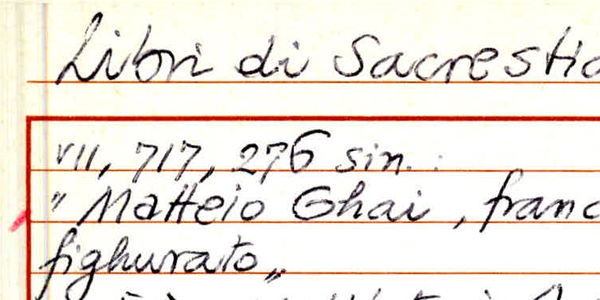 Libri di Sacrestia
VII, 717, 276 sin. :
"Matteio Ghai, franc
fighurato„